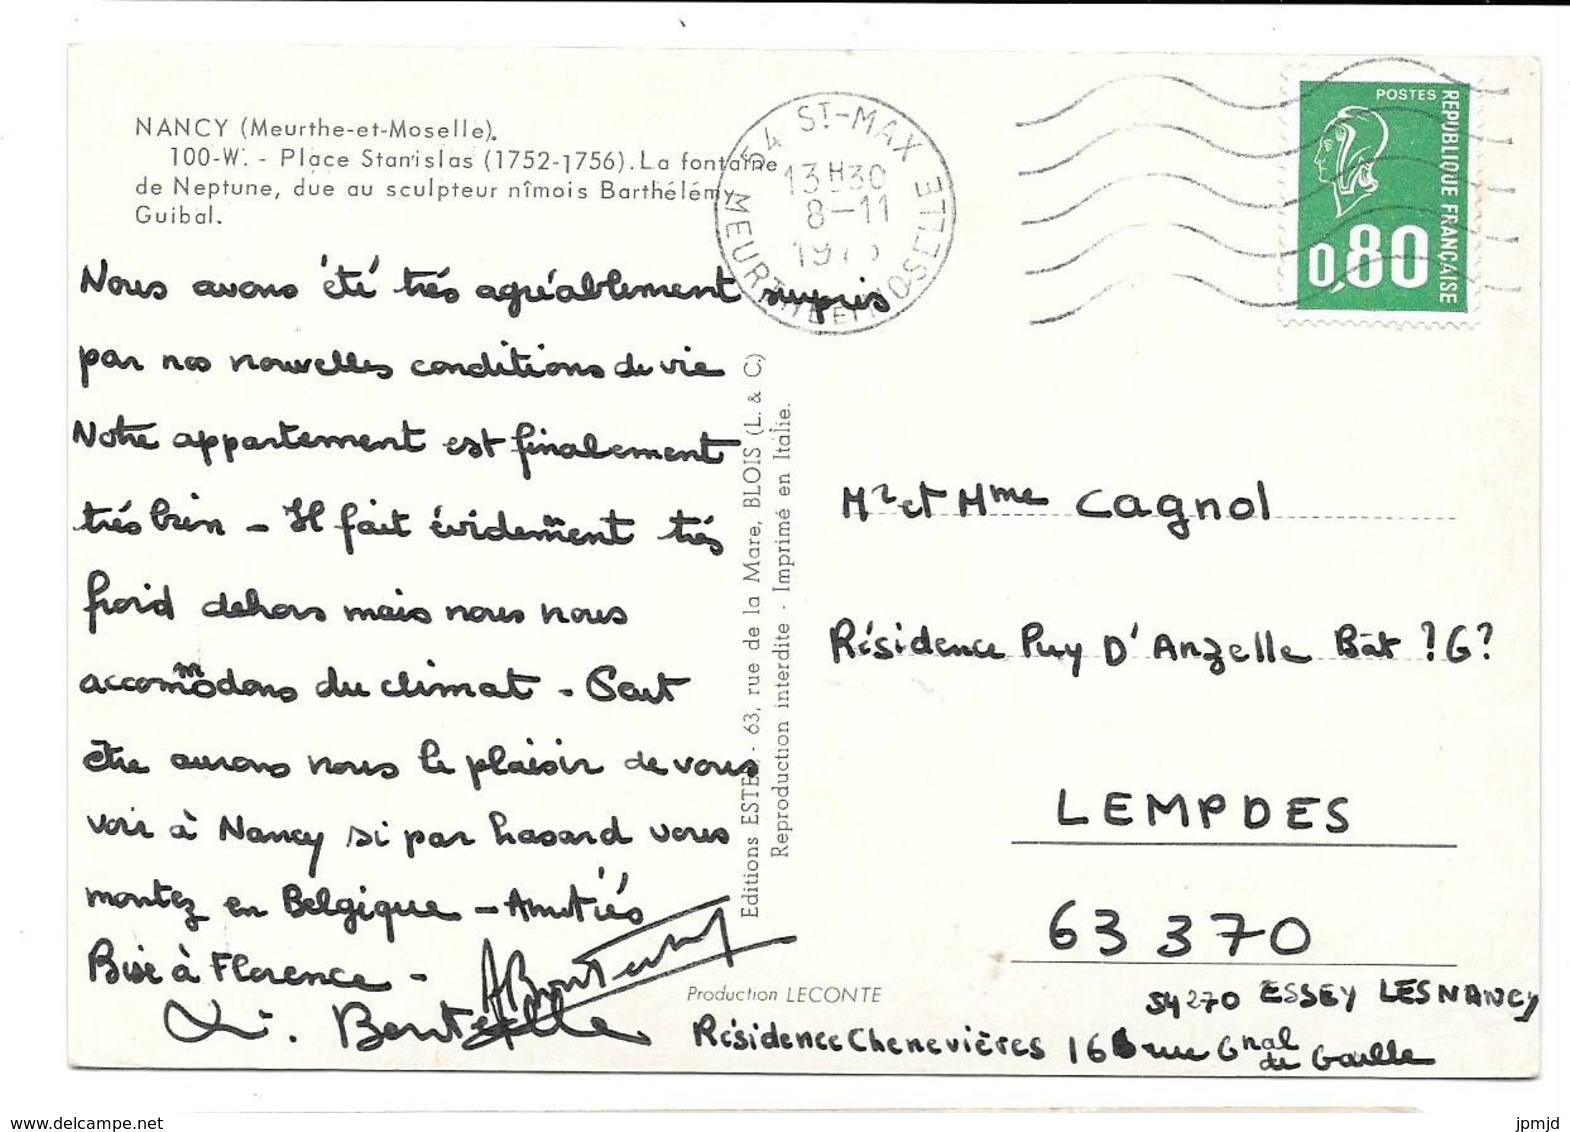 NANCY (Meurthe-et-Moselle).
100-W. - Place Stanislas (1752-1756). La fontaine
de Neptune, due au sculpteur nîmois Barthélémy
Guibal.
54 ST-MAX
13H30
8-11
MEURTHE-ET-MOSELLE
POSTES
REPUBLIQUE FRANÇAISE
0,80
Nous avons été très agréablement surpris
par nos nouvelles conditions de vie
Notre appartement est finalement
très bien - Il fait évidemment très
froid dehors mais nous nous
accommodons du climat - Peut
être aurons nous le plaisir de vous
voir à Nancy si par hasard vous
montez en Belgique - Amitiés
Bise à Florence -
Editions ESTEL - 63, rue de la Mare, BLOIS (L. & C.)
Reproduction interdite - Imprimé en Italie.
Mr et Mme Cagnol
Résidence Puy D'Anzelle Bât ?G?
LEMPDES
63 370
Production LECONTE
54270 ESSEY LES NANCY
Résidence Chenevières 16 rue Gnal de Gaulle
delcampe.net
jpmjd